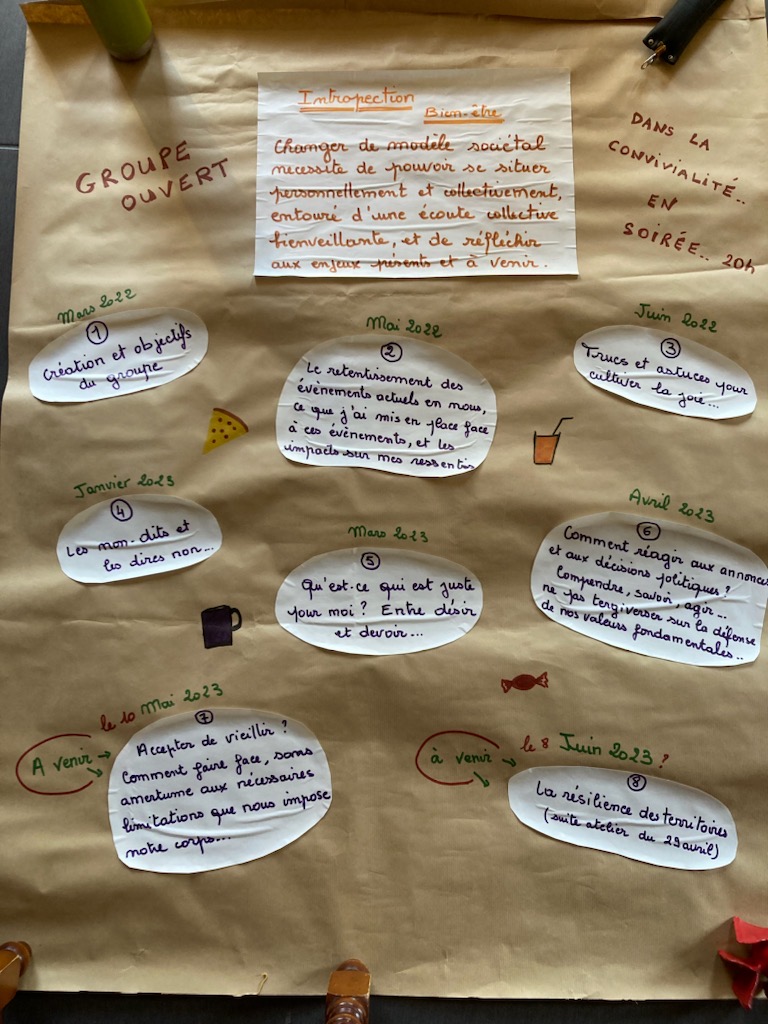 Intropection
Bien-être
Changer de modèle sociétal
necessite de pouvoir se situer
personnellement et collectivement,
entouré d'une écoute collective
bienveillante, et de réfléchir
aux enjeux présents et à venir.
GROUPE
OUVERT
DANS LA
CONVIVIALITÉ..
EN
SOIRÉE.. 20h
Mars 2022
1
Création et objectifs
du groupe
Mai 2022
2
Le retentissement des
évènements actuels en nous,
ce que j'ai mis en place face
à ces évènements, et les
impacts sur mes ressentis
Juin 2022
3
Trucs et astuces pour
cultiver la joie...
Janvier 2023
4
Les non-dits et
les dires non...
Mars 2023
5
Qu'est-ce qui est juste
pour moi? Entre désir
et devoir...
Avril 2023
6
Comment réagir aux annonces
et aux décisions politiques?
Comprendre, savoir, agir...
ne pas tergiverser sur la défense
de nos valeurs fondamentales..
A venir
le 10 Mai 2023
7
Accepter de vieillir?
Comment faire face, sans
amertume aux nécessaires
limitations que nous impose
notre corps...
à venir
le 8 Juin 2023?
8
La résilience des territoires
(suite atelier du 29 avril)